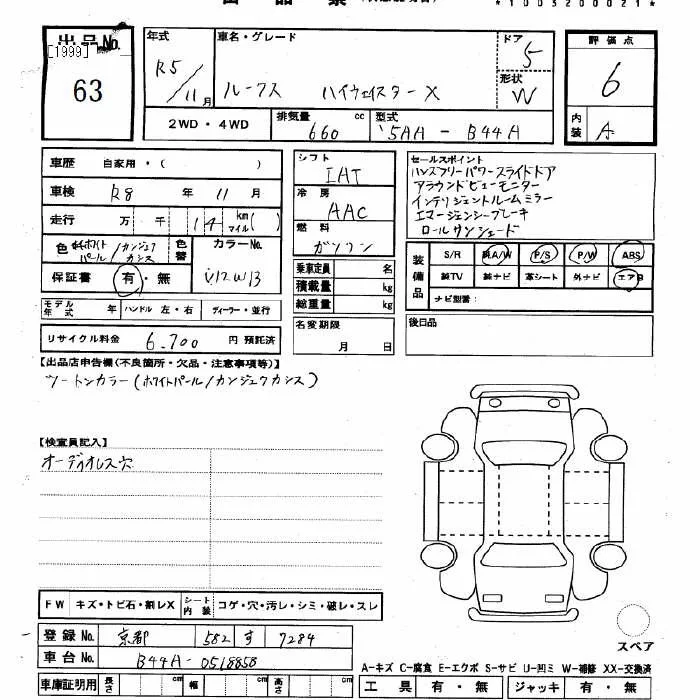 *10032000021*
出品No.
[1999]
63
年式 R5/11月
車名・グレード ルークス ハイウェイスターX
ドア 5
形状 W
評価点 6
内装 A
2WD・4WD
排気量 660 cc
型式 5AA-B44A
車歴 自家用・( )
車検 R8年 11月
走行 万 千 14 km マイル( )
色 ホワイトパール/カンジュクカシス
色替
カラーNo.
保証書 有・無
モデル年式 年 ハンドル 左・右 ディーラー・並行
リサイクル料金 6,700 円 預託済
シフト IAT
冷房 AAC
燃料 ガソリン
乗車定員 名
積載量 kg
総重量 kg
名変期限
月 日
セールスポイント
ハンズフリーパワースライドドア
アラウンドビューモニター
インテリジェントルームミラー
エマージェンシーブレーキ
ロールサンシェード
装備品
S/R 純A/W P/S P/W ABS
純TV 純ナビ 革シート 外ナビ エアB
ナビ型番:
後日品
【出品店申告欄(不良箇所・欠品・注意事項等)】
ツートンカラー(ホワイトパール/カンジュクカシス)
【検査員記入】
オーディオレス穴
FW キズ・トビ石・割レX シート内装 コゲ・穴・汚レ・シミ・破レ・スレ
登録No. 京都 582 す 7284
車台No. B44A-0518858
車庫証明用 長さ cm 幅 cm 高さ cm
スペア
A-キズ C-腐食 E-エクボ S-サビ U-凹ミ W-補修 XX-交換済
工具 有・無 ジャッキ 有・無